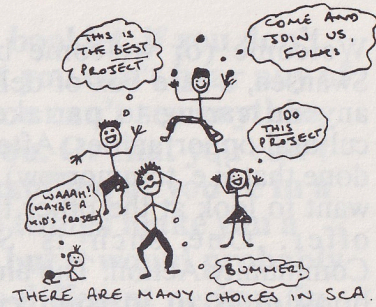 THIS IS
THE BEST
PROJECT
COME AND
JOIN US,
FOLKS!
DO
THIS
PROJECT
WAAAH!
(MAYBE A
KID'S PROJECT
BUMMER!
THERE ARE MANY CHOICES IN SCA